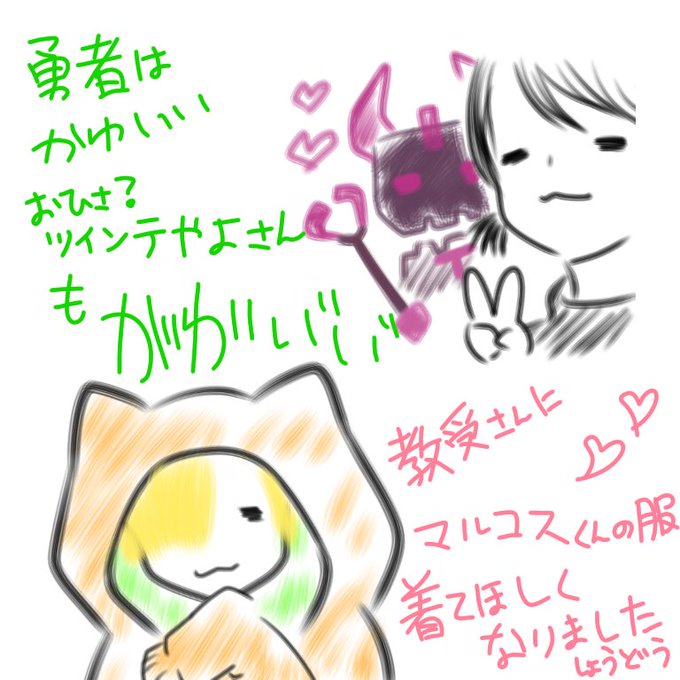 勇者は
かゆいい
おひさ?
ツインテやよさん
も
がわいいい
教受さんに
マルコスくんの服
着てほしく
なりました
しょうどう